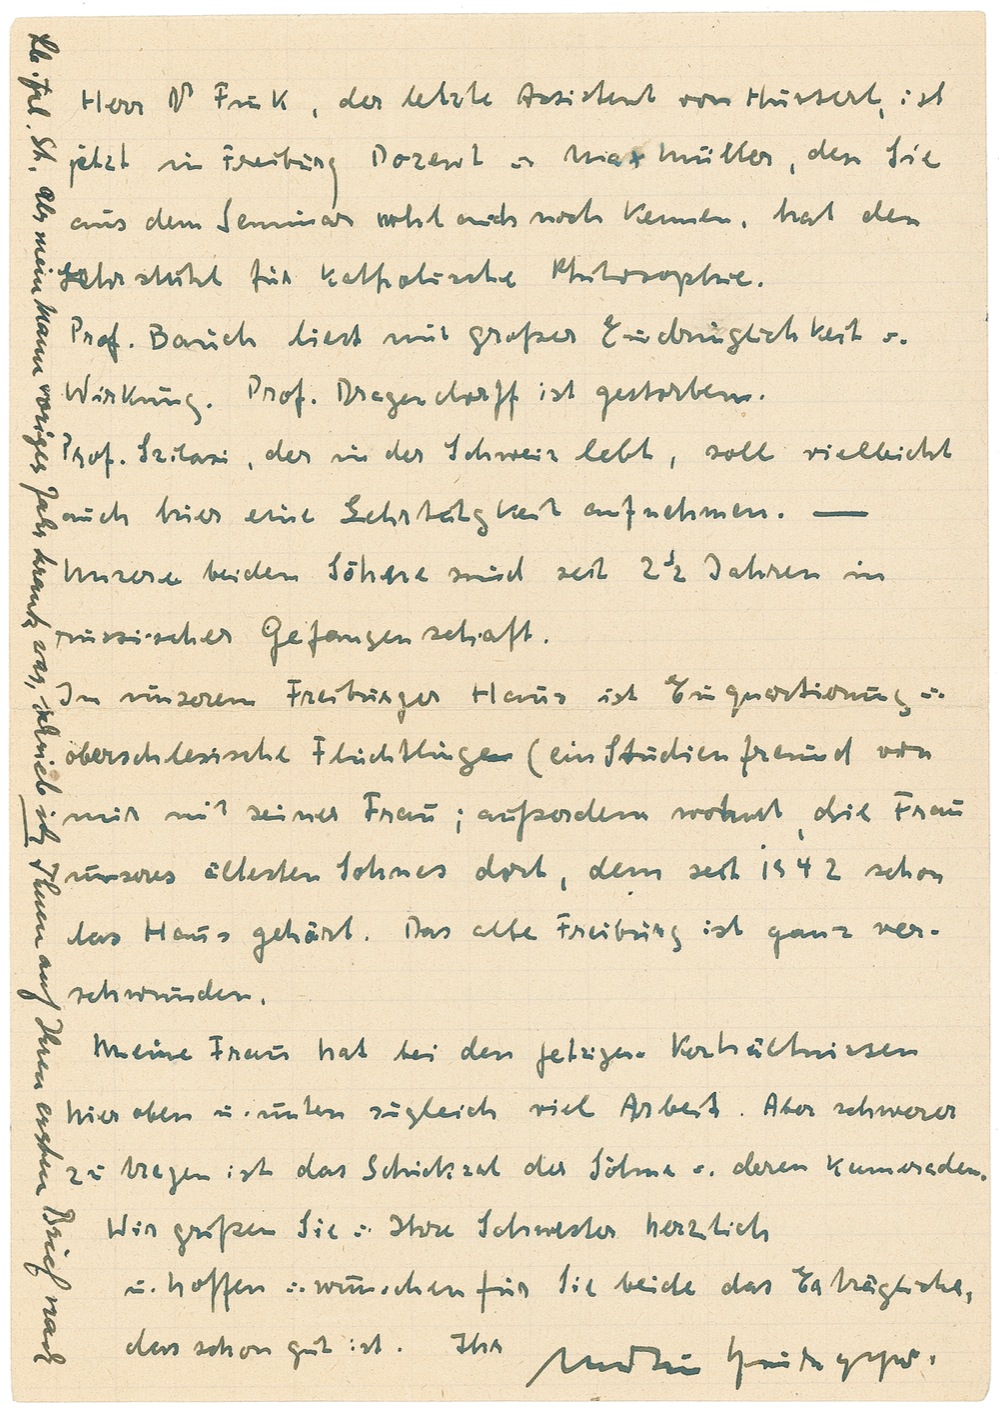 Herr Dr Fink, der letzte Assistent von Husserl, ist
jetzt in Freiburg Dozent u. Max Müller, den Sie
aus dem Seminar wohl auch noch kennen, hat den
Lehrstuhl für katholische Philosophie.
Prof. Bauch liest mit großer Eindringlichkeit u.
Wirkung. Prof. Dragendorff ist gestorben.
Prof. Szilasi, der in der Schweiz lebt, soll vielleicht
auch hier eine Lehrtätigkeit aufnehmen. —
Unsere beiden Söhne sind seit 2½ Jahren in
russischer Gefangenschaft.
In unserem Freiburger Haus ist Einquartierung u.
oberschlesische Flüchtlinge (ein Studienfreund von
mir mit seiner Frau; außerdem wohnt die Frau
unseres ältesten Sohnes dort, dem seit 1942 schon
das Haus gehört. Das alte Freiburg ist ganz ver-
schwunden.
Meine Frau hat bei den jetzigen Verhältnissen
hier oben u. unten zugleich viel Arbeit. Aber schwerer
zu tragen ist das Schicksal der Söhne u. deren Kameraden.
Wir grüßen Sie u. Ihre Schwester herzlich
u. hoffen u. wünschen für Sie beide das Erträgliche,
das schon gut ist. Ihr
Martin Heidegger.
Lb. Frl. St. als mein Mann voriges Jahr krank war, schrieb ich Ihnen auf Ihren ersten Brief nach